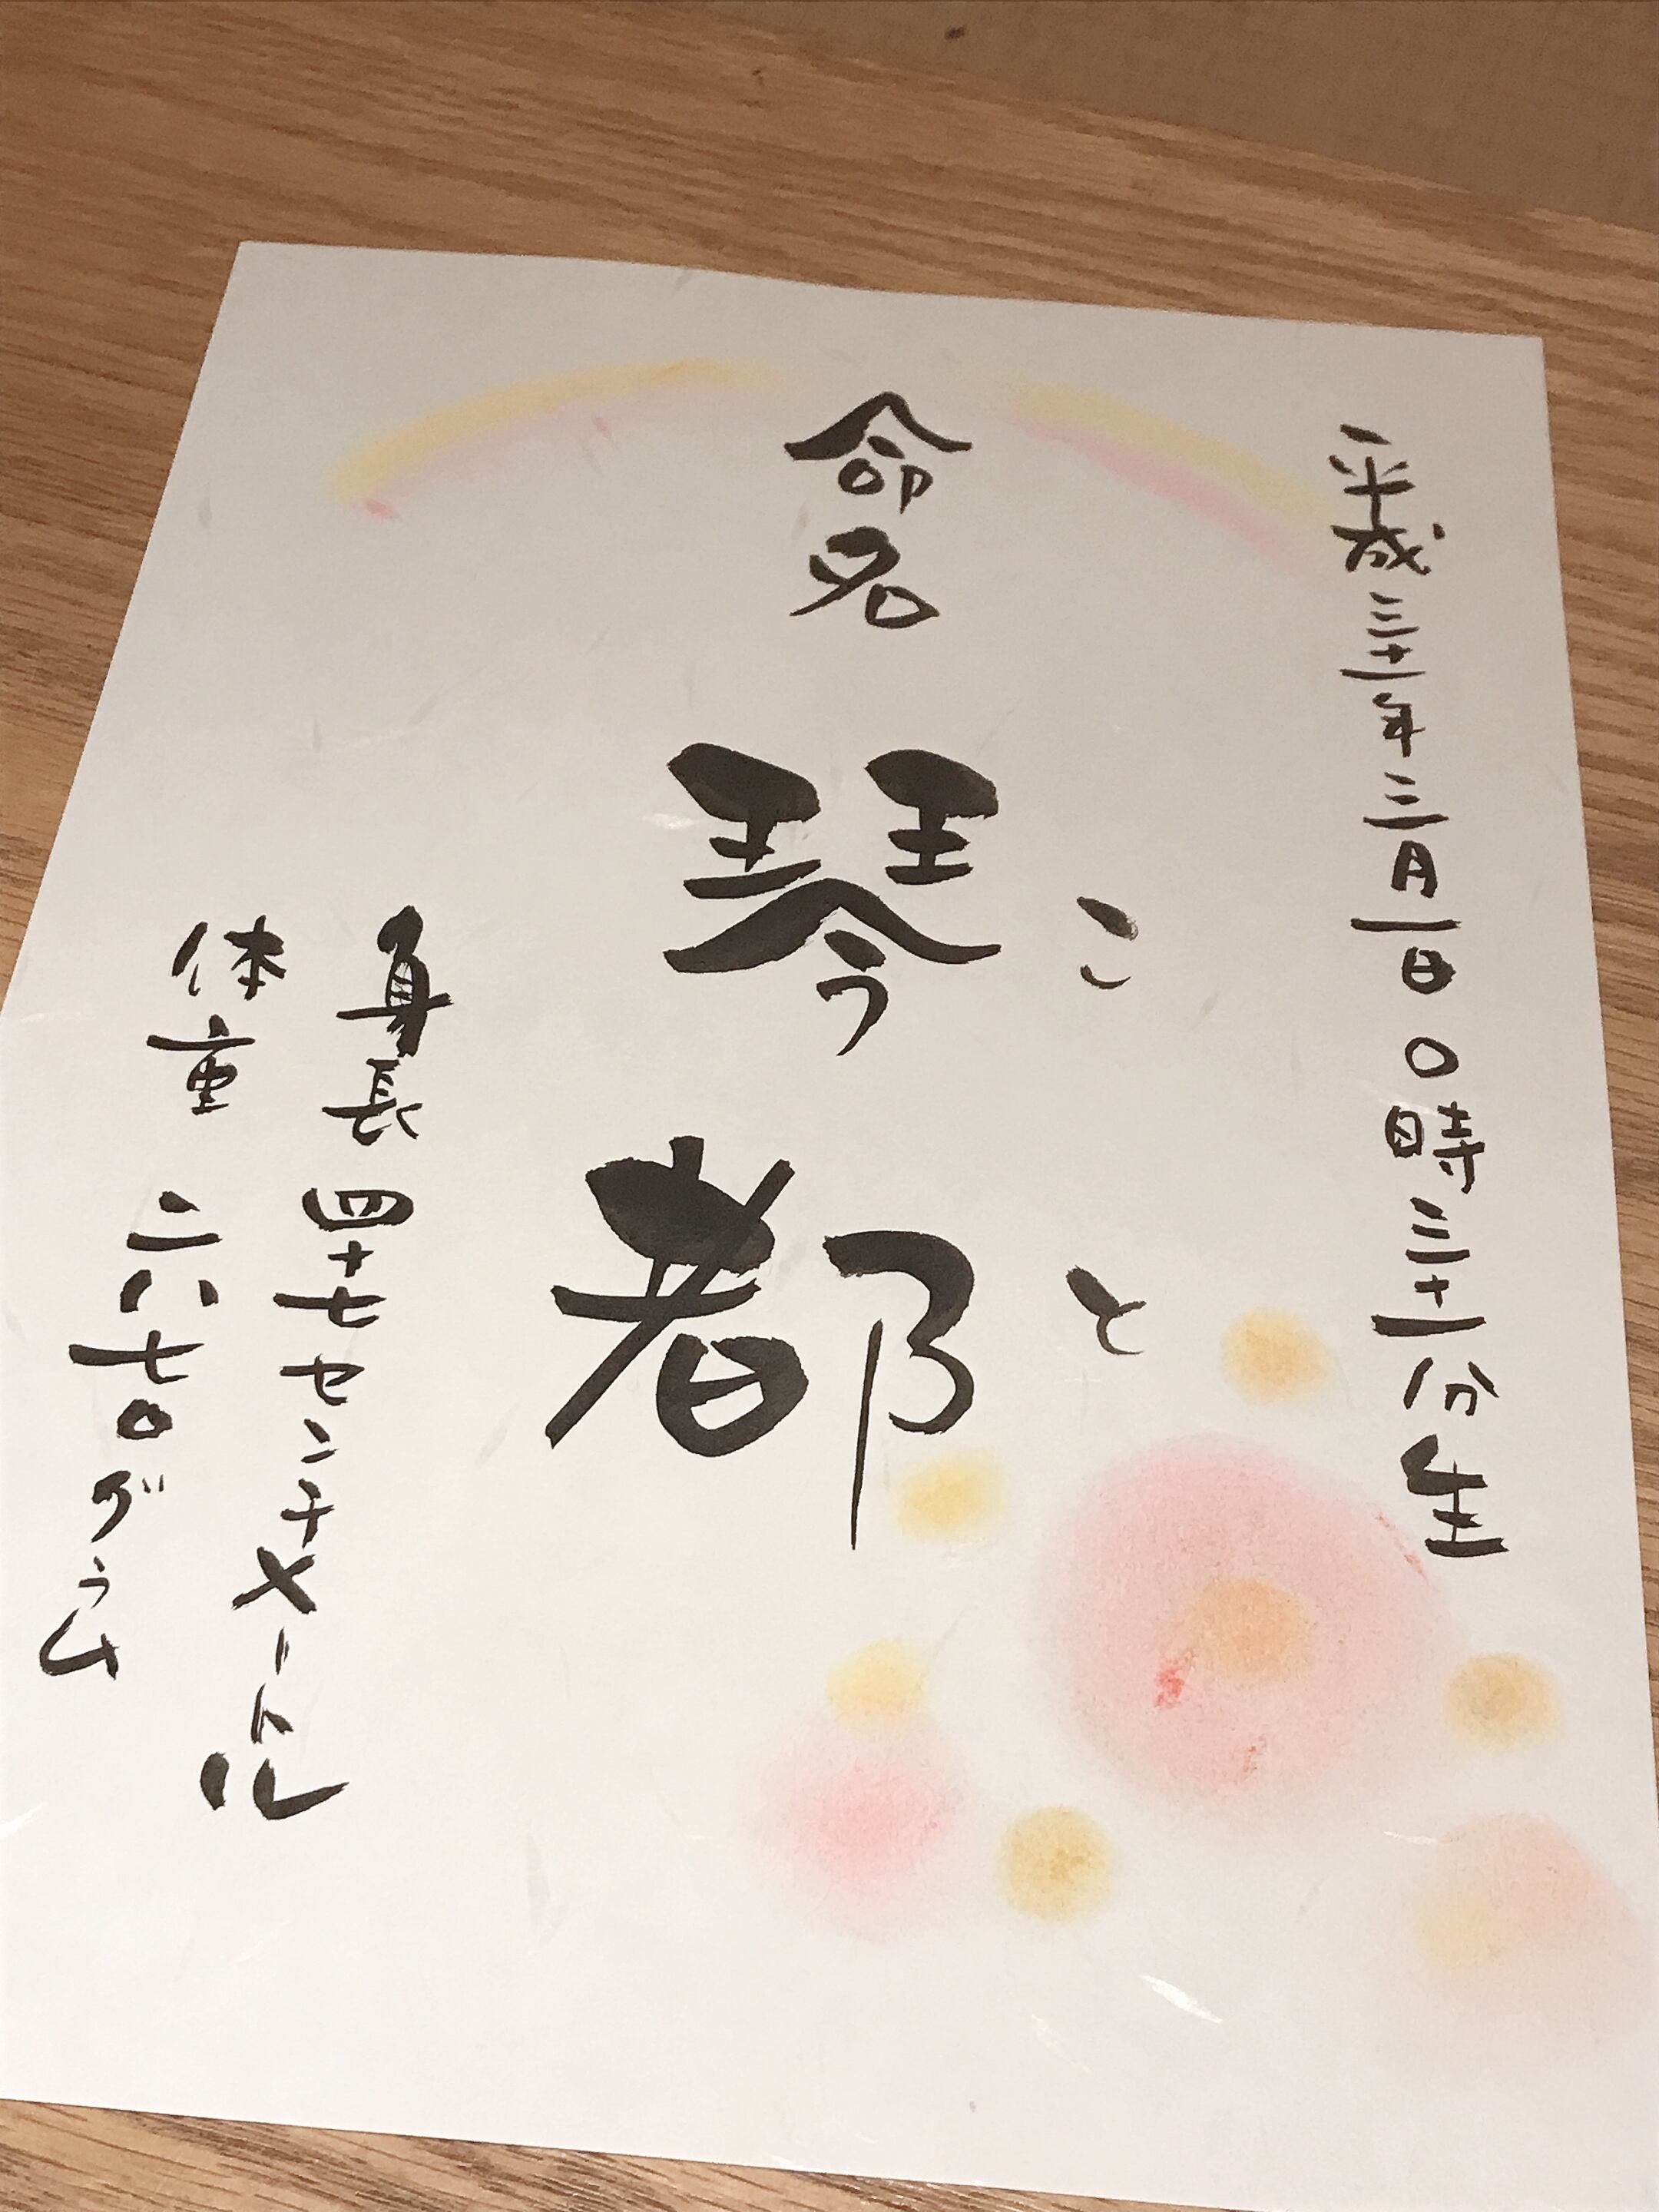 平成三十一年三月一日〇時三十一分生
命名
琴都
こと
身長四十七センチメートル
体重二八七〇グラム